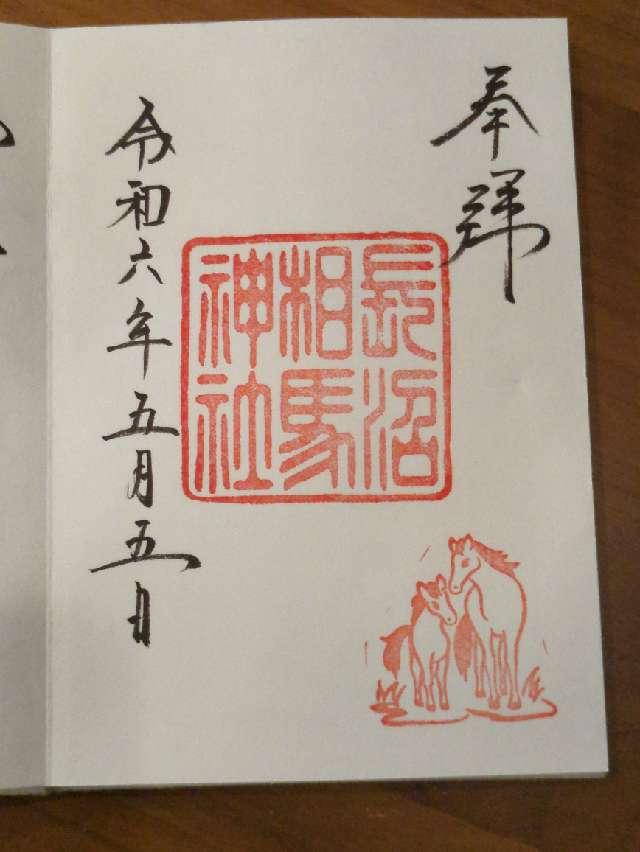 奉拝
長沼
相馬
神社
令和六年五月五日